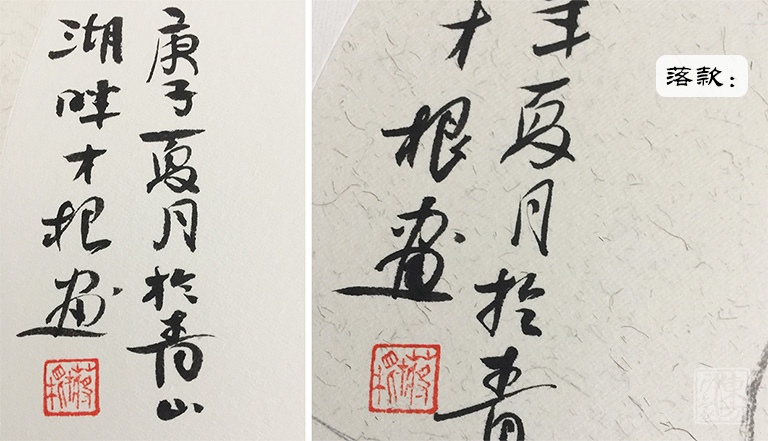 庚子夏月於青山
湖畔才根畫
年夏月於青
才根畫
落款：